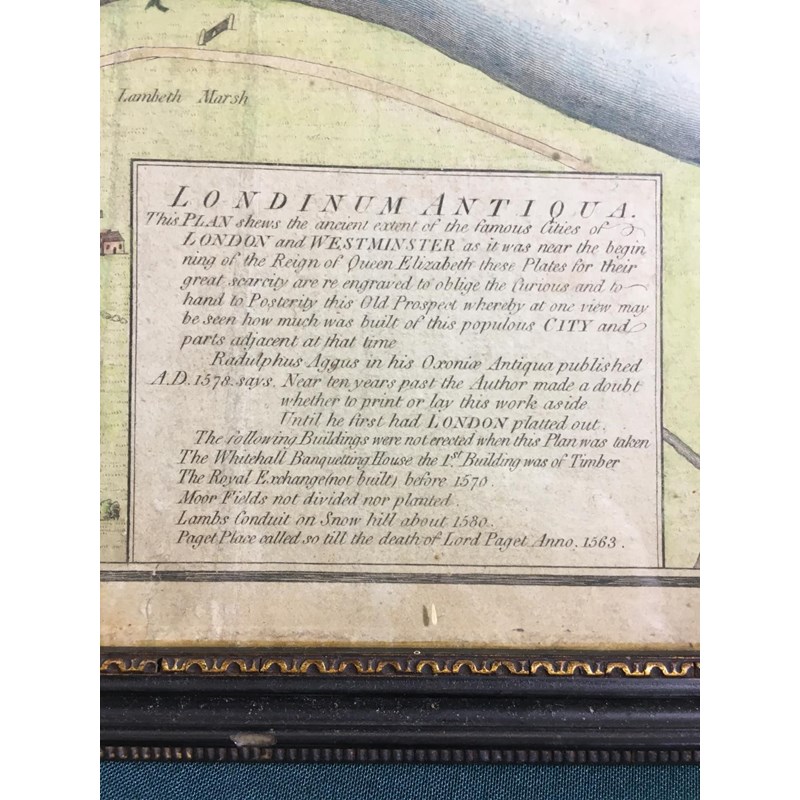 Lambeth Marsh
LONDINUM ANTIQUA.
This PLAN shews the ancient extent of the famous Cities of
LONDON and WESTMINSTER as it was near the begin
ning of the Reign of Queen Elizabeth these Plates for their
great scarcity are re engraved to oblige the Curious and to
hand to Posterity this Old Prospect whereby at one view may
be seen how much was built of this populous CITY and
parts adjacent at that time
Radulphus Aggus in his Oxoniæ Antiqua published
A.D. 1578. says. Near ten years past the Author made a doubt
whether to print or lay this work aside
Until he first had LONDON platted out.
The following Buildings were not erected when this Plan was taken
The Whitehall Banquetting House the 1st Building was of Timber
The Royal Exchange (not built) before 1570.
Moor Fields not divided nor planted.
Lambs Conduit on Snow hill about 1580.
Paget Place called so till the death of Lord Paget Anno. 1563.